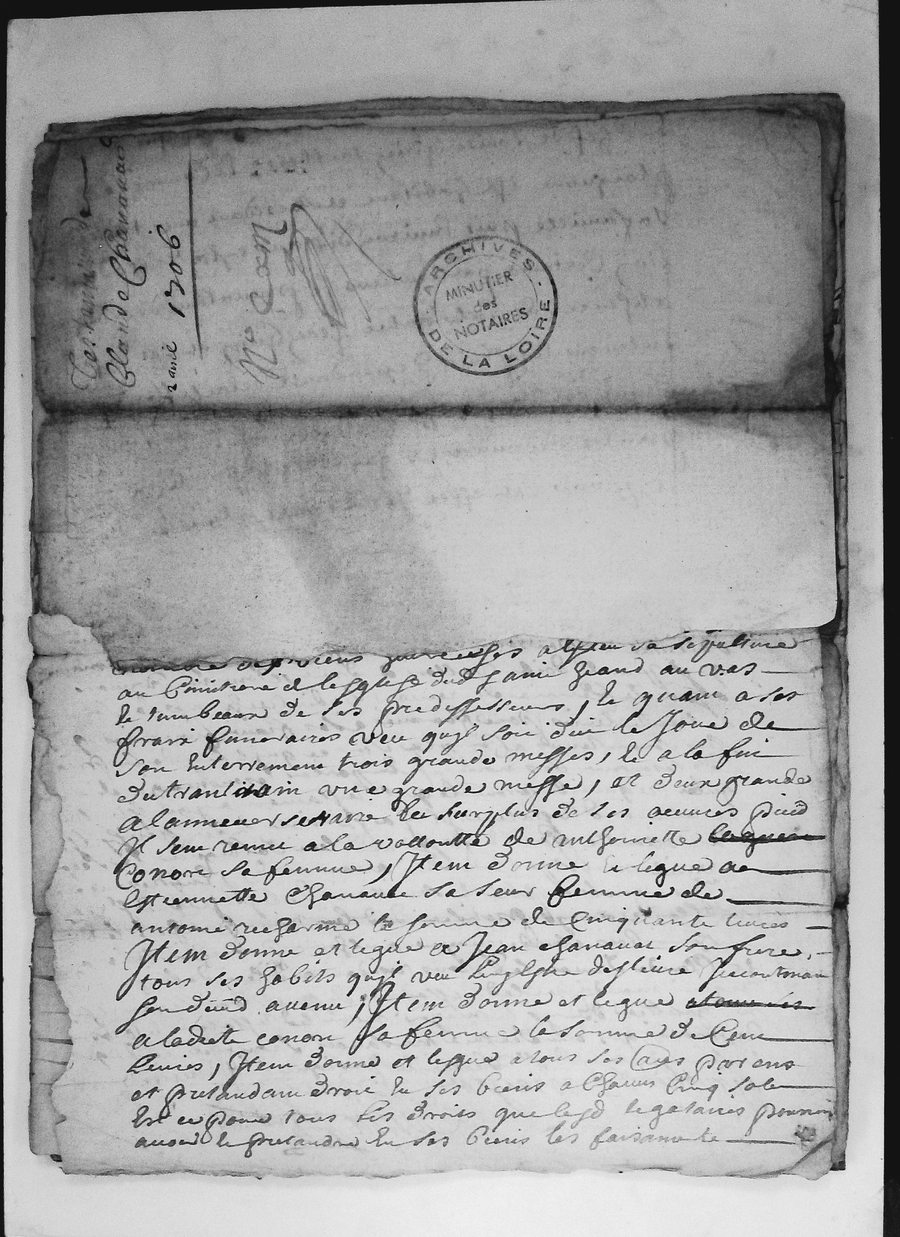 Testament de
Claude Chanavat
2 avril 1706
No Cent
ARCHIVES DE LA LOIRE
MINUTIER
des
NOTAIRES
sa sepulture
au Cimittiere de lesglise dud saint heand au vas
et tumbeaux de ses predessesseurs, et quant a ses
fraix funeraires veu quil soit dit le Jour de
son enterrement trois grande messes, et a la fin
du trantain vne grande messe, et deux grande
a lanneuersere et du surplus de ses œuures pied
Il sen remet a la vollontte de anthoinette
Conort sa femme, Item donne et legue a
Estiennette Chanauat sa seur femme de
antoine la somme de Cinquante liures
Item donne et legue a Jean chanauat son frere
tous ses habits quil veu luy estre desliuré
son deced auenu, Item donne et legue
a ladictte conort sa femme la somme de Cent
liures, Item donne et legue a tous ses autres parans
et pretandant droit en ses biens a Chacun Cinq sols
et ce pour tous les droits que lesd legataires pourroit
auoir et pretandre en ses biens les faisant